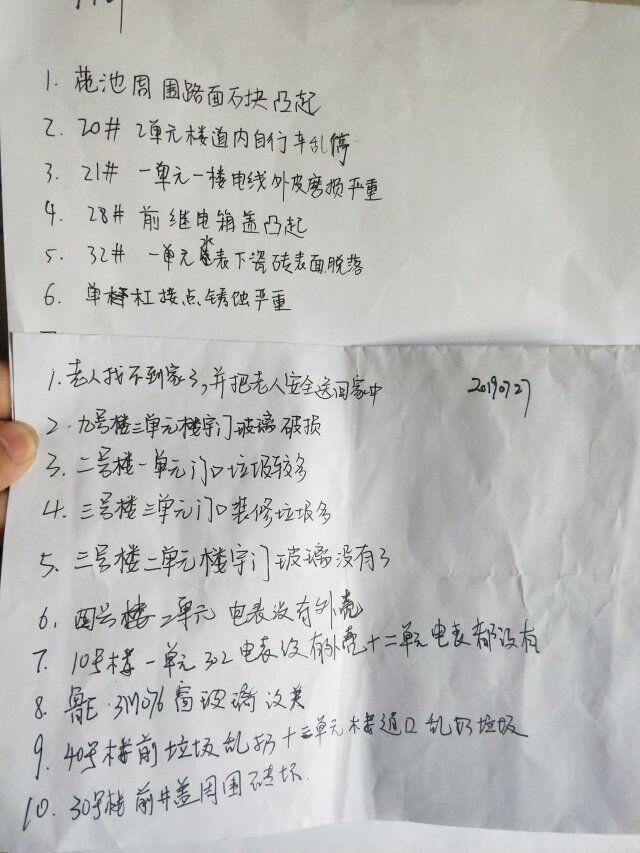 1. 花池周围路面石块凸起
2. 20# 2单元楼道内自行车乱停
3. 21# 一单元一楼电线外皮磨损严重
4. 28# 前继电箱盖凸起
5. 32# 一单元水表下瓷砖表面脱落
6. 单杠接点锈蚀严重
1. 老人找不到家了,并把老人安全送回家中 20190727
2. 九号楼三单元楼宇门玻璃破损
3. 二号楼一单元门口垃圾较多
4. 三号楼三单元门口装修垃圾多
5. 三号楼二单元楼宇门玻璃没有了
6. 四号楼2单元 电表没有外壳
7. 10号楼一单元302电表没有外壳十二单元电表都没有
8. 鲁E·3M076窗玻璃没关
9. 40号楼前垃圾乱扔十三单元楼道口乱扔垃圾
10. 30号楼前井盖周围砖坏.